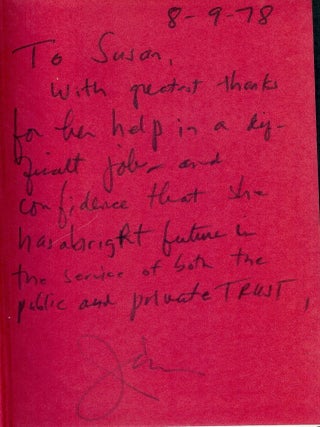 8-9-78
To Susan,
With greatest thanks
for her help in a dif-
ficult job - and
confidence that she
has a bright future in
the service of both the
public and private TRUST,
John